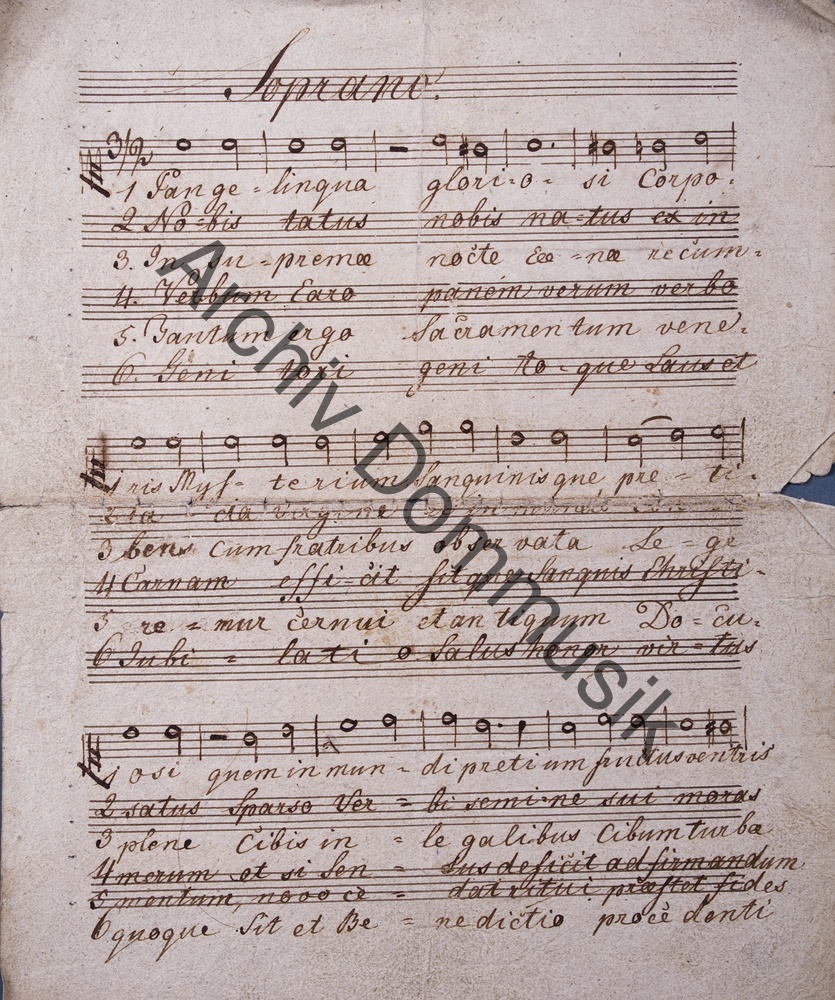 Soprano.
3/2
1 Pange = lingua glori=o= si Corpo=
2 No=bis tatus nobis na=tus ex in
3. In su=premæ nocte Cœ=næ recum=
4. Verbum Caro panem verum verbo
5. Tantum ergo Sacramentum vene=
6. Geni tori geni to=que Laus et
1 ris Mys= terium Sanguinisque pre=ti=
2 ta cta virgine
3 bens cum fratribus observata Le=ge
4 Carnam effi=cit fitque Sanquis Christi=
5 re=mur cernui et antiquum Do=cu=
6 Iubi=lati o Salus honor vir=tus
1 osi quem in mun=di pretium fructus ventris
2 satus Sparso Ver=bi semi=ne sui moras
3 plene Cibis in=le galibus Cibum turbæ
4 merum et si Sen=sus deficit ad firmandum
5 mentum, novo ce=dat ritui præstet fides
6 quoque Sit et Be=nedictio procedenti
Archiv Dommusik